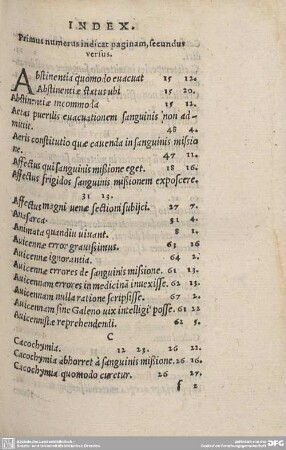 INDEX.
Primus numerus indicat paginam, secundus
versus.
Abstinentia quomodo euacuat 15 12.
Abstinentiæ status ubi 15 20.
Abstinentiæ incommoda 15 12.
Aetas puerilis euacuationem sanguinis non ad-
mittit. 48 4.
Aeris constitutio quæ cauenda in sanguinis missio
ne. 47 11.
Affectus qui sanguinis missione eget. 18 16.
Affectus frigidos sanguinis missionem exposcere.
31 13.
Affectus magni uenæ sectioni subijci. 27 7.
Anasarca. 31 4.
Animata quandiu uiuant. 8 1.
Auicennæ error grauissimus. 63 16
Auicennæ ignorantia. 64 2.
Auicennæ errores de sanguinis missione. 61 13.
Auicennam errores in medicinā inuexisse. 62 13.
Auicennam nulla ratione scripsisse. 67 2.
Auicennam sine Galeno uix intelligi posse. 61 22
Auicennistæ reprehendendi. 62 5.
C
Cacochymia. 12 23. 26 22.
Cacochymia abhorret à sanguinis missione. 26 16.
Cacochymia quomodo curetur. 26 27.
f 2